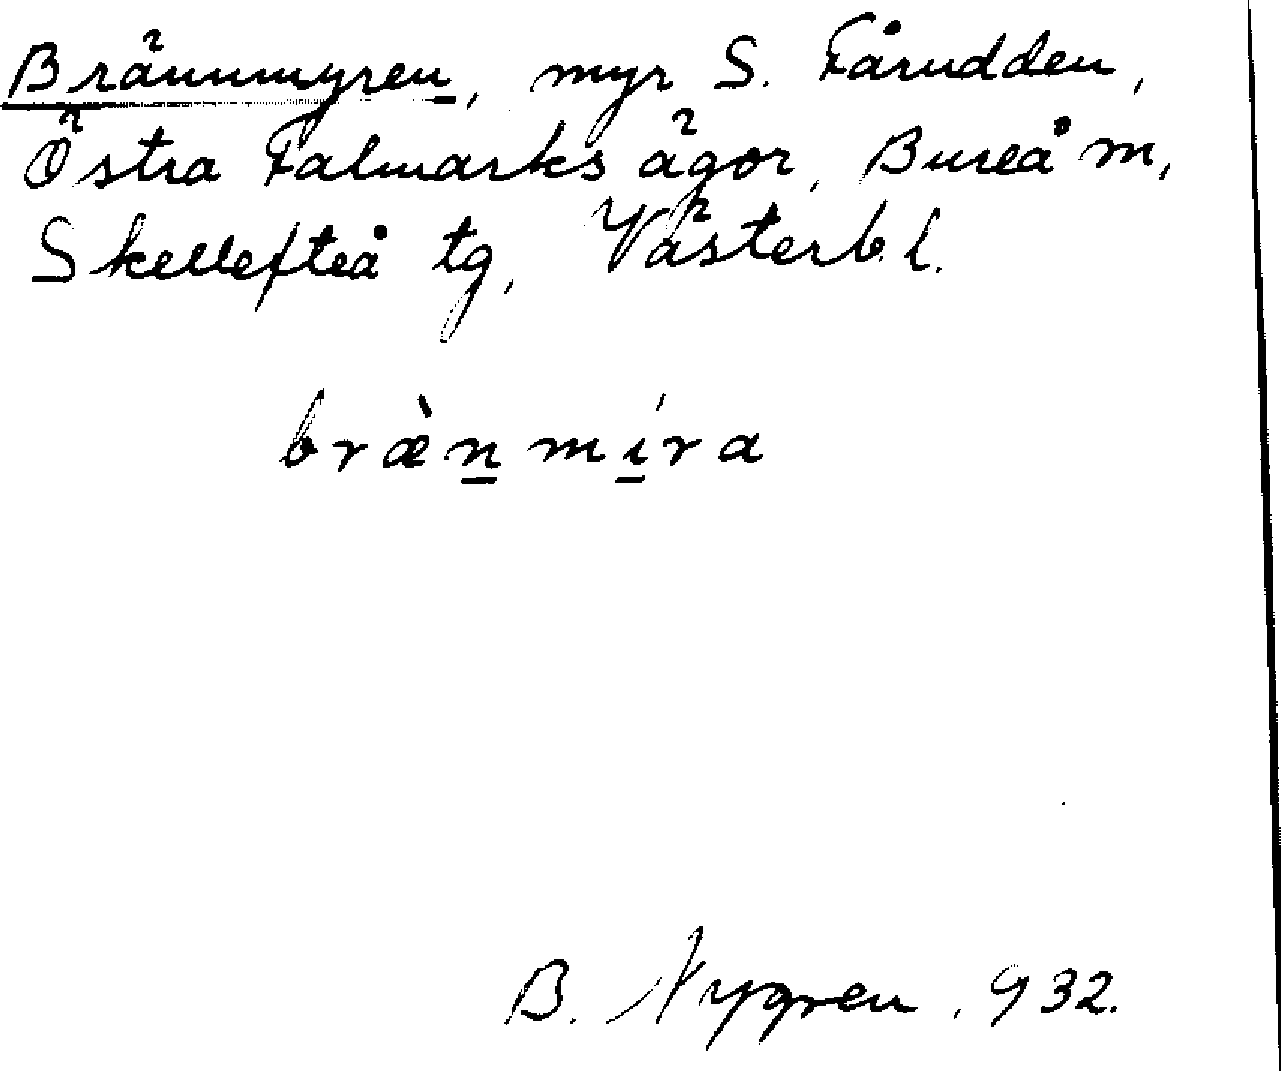 Brännmyren, myr S. Fårudden,
Östra Falmarks ägor, Bureå m,
Skellefteå tg, Västerb. l.
bræ̀n̲ mí̲ra
B. Nygren. 932.